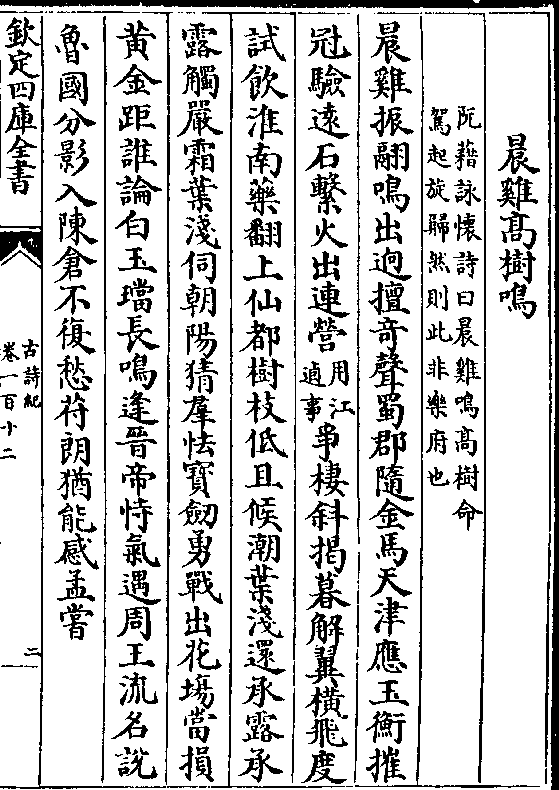 晨雞髙樹鳴
阮藉詠懷詩曰晨雞鳴髙樹命
駕起旋歸然則此非樂府也
晨雞振翮鳴出逈擅竒聲蜀郡隨金馬天津應玉衡摧
冠驗逺石繫火出連營用江逌事爭棲斜揭暮解翼横飛度
試飲淮南藥翻上仙都樹枝低且候潮葉淺還承露承
露觸嚴霜葉淺伺朝陽猜羣怯寶劒勇戰出花塲當損
黄金距誰論白玉璫長鳴逢晉帝恃氣遇周王流名說
魯國分影入陳倉不復愁苻朗猶能感孟嘗
欽定四庫全書
古詩紀
卷一百十二
二